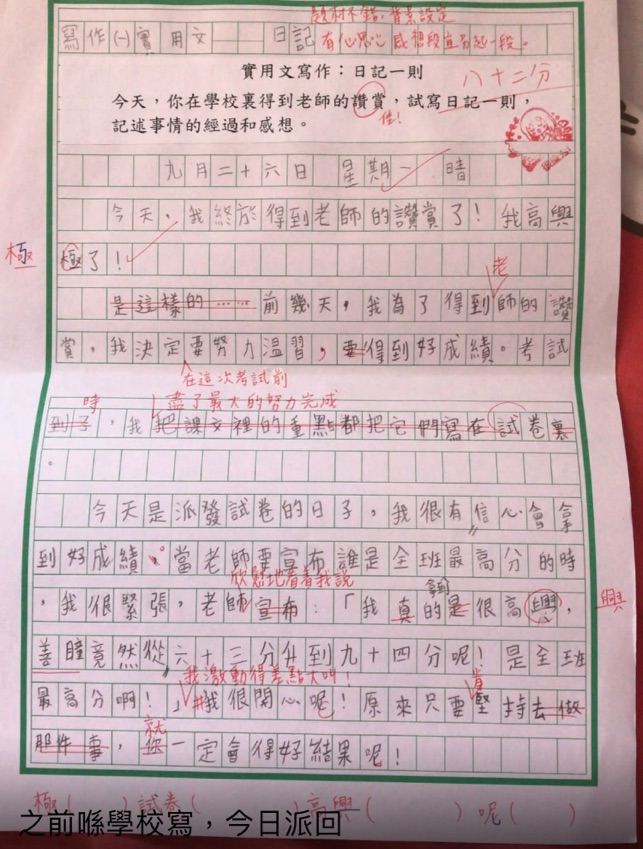 題材不錯，背景設定
寫作(一)實用文　日記
有心思心感想段宜另起一段。
實用文寫作：日記一則
八十二分
今天，你在學校裏得到老師的讚賞，試寫日記一則，
佳！
記述事情的經過和感想。
九月二十六日　星期一　晴
今天，我終於得到老師的讚賞了！我高興
極
極了！
老
是這樣的……前幾天，我為了得到師的讚
賞，我決定要努力溫習，要得到好成績。考試
在這次考試前
時
盡了最大的努力完成
到子，我把課文裡的重點都把它們寫在試卷裏
。
今天是派發試卷的日子，我很有信心會拿
到好成績。當老師要宣布誰是全班最高分的時
欣慰地看着我說
，我很緊張，老師宣布：「我真的是很高興，
興
善瞳竟然從六十三分升到九十四分呢！是全班
我激動得差點大叫！
肯
最高分啊！」我很開心呢！原來只要堅持去做
就
那件事，你一定會得好結果呢！
極(　)試卷(　)高興(　)呢(　)
之前喺學校寫，今日派回